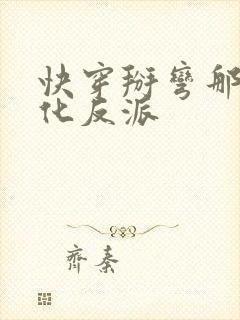 快穿掰弯那
化反派
齊秦